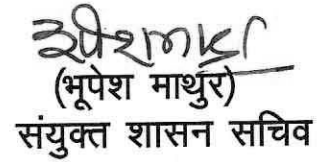 (भूपेश माथुर)
संयुक्त शासन सचिव